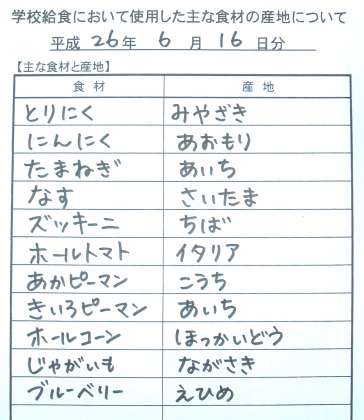 学校給食において使用した主な食材の産地について
平成 26年 6 月 16 日分
【主な食材と産地】
食材 産地
とりにく みやざき
にんにく あおもり
たまねぎ あいち
なす さいたま
ズッキーニ ちば
ホールトマト イタリア
あかピーマン こうち
きいろピーマン あいち
ホールコーン ほっかいどう
じゃがいも ながさき
ブルーベリー えひめ